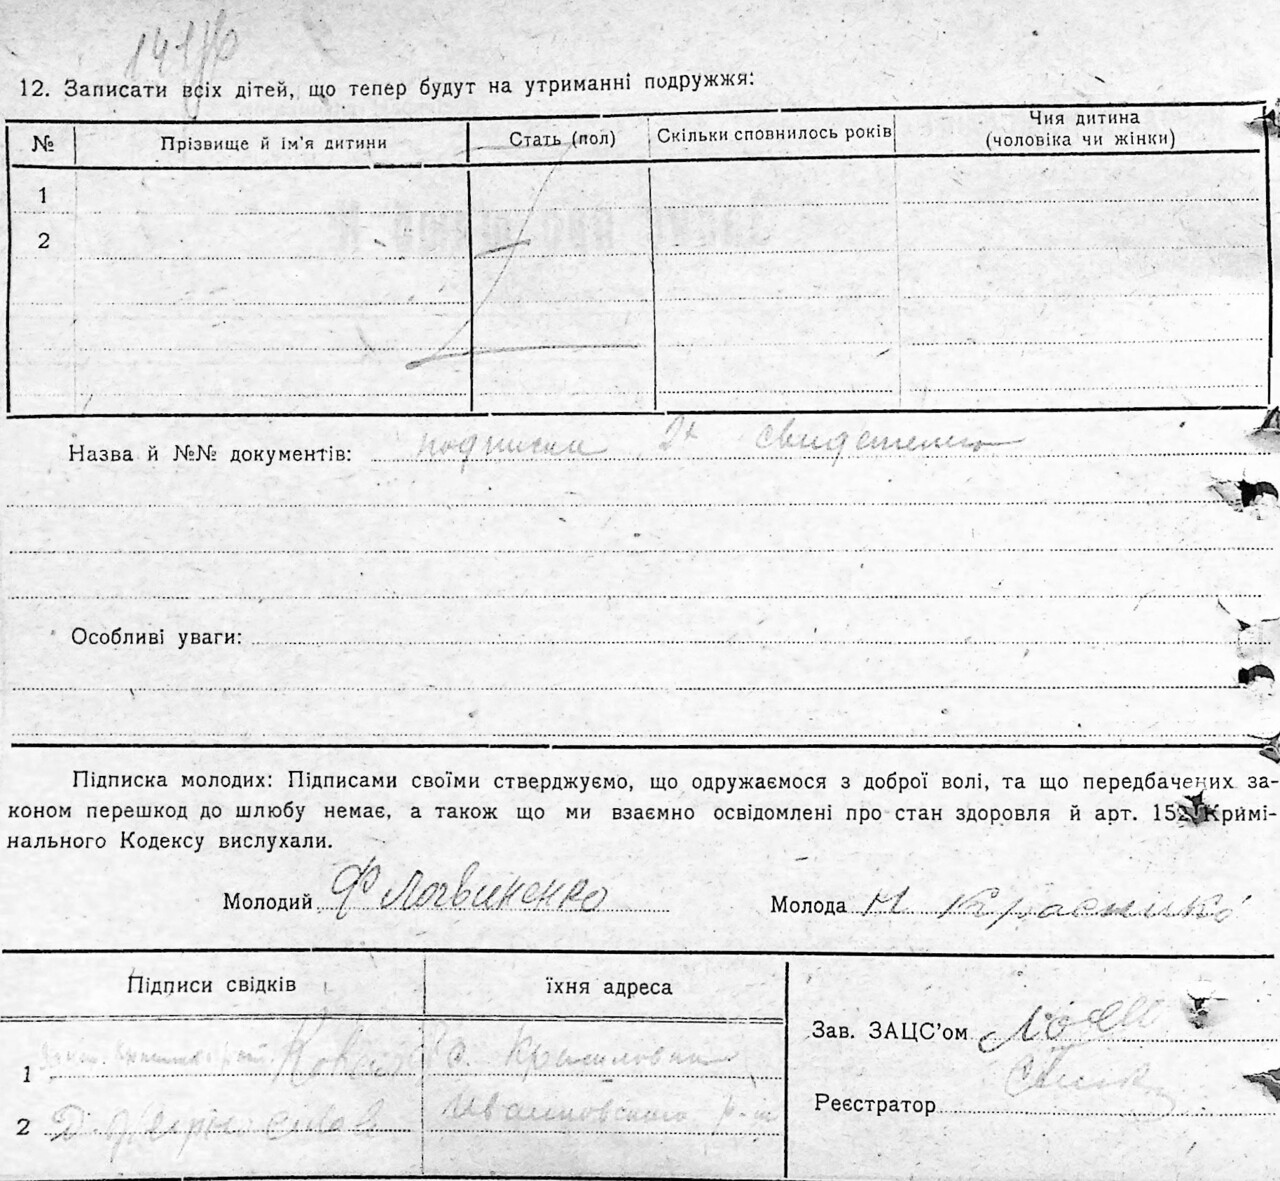 12. Записати всіх дітей, що тепер будут на утриманні подружжя:
№ Прізвище й ім'я дитини Стать (пол) Скільки сповнилось років Чия дитина
(чоловіка чи жінки)
1
2
Назва й №№ документів: подписки 2х свидетелей
Особливі уваги:
Підписка молодих: Підписами своїми стверджуємо, що одружаємося з доброї волі, та що передбачених за-
коном перешкод до шлюбу немає, а також що ми взаємно освідомлені про стан здоровля й арт. 152 Кримі-
нального Кодексу вислухали.
Молодий Ф Логвиненко Молода Н Красніко
Підписи свідків їхня адреса
Зав. ЗАЦС'ом
1 с. Красиловка
Реєстратор
2 Ивановского р-на